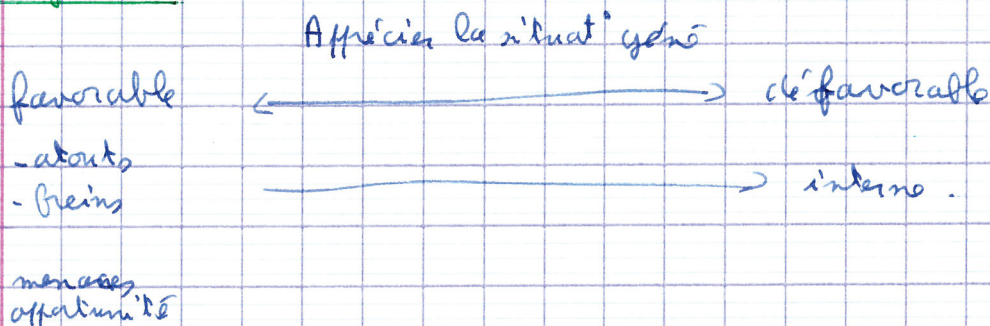 Apprécier la situat° géné
favorable ↔ défavorable
- atouts
- freins → interne.
menaces
opportunité